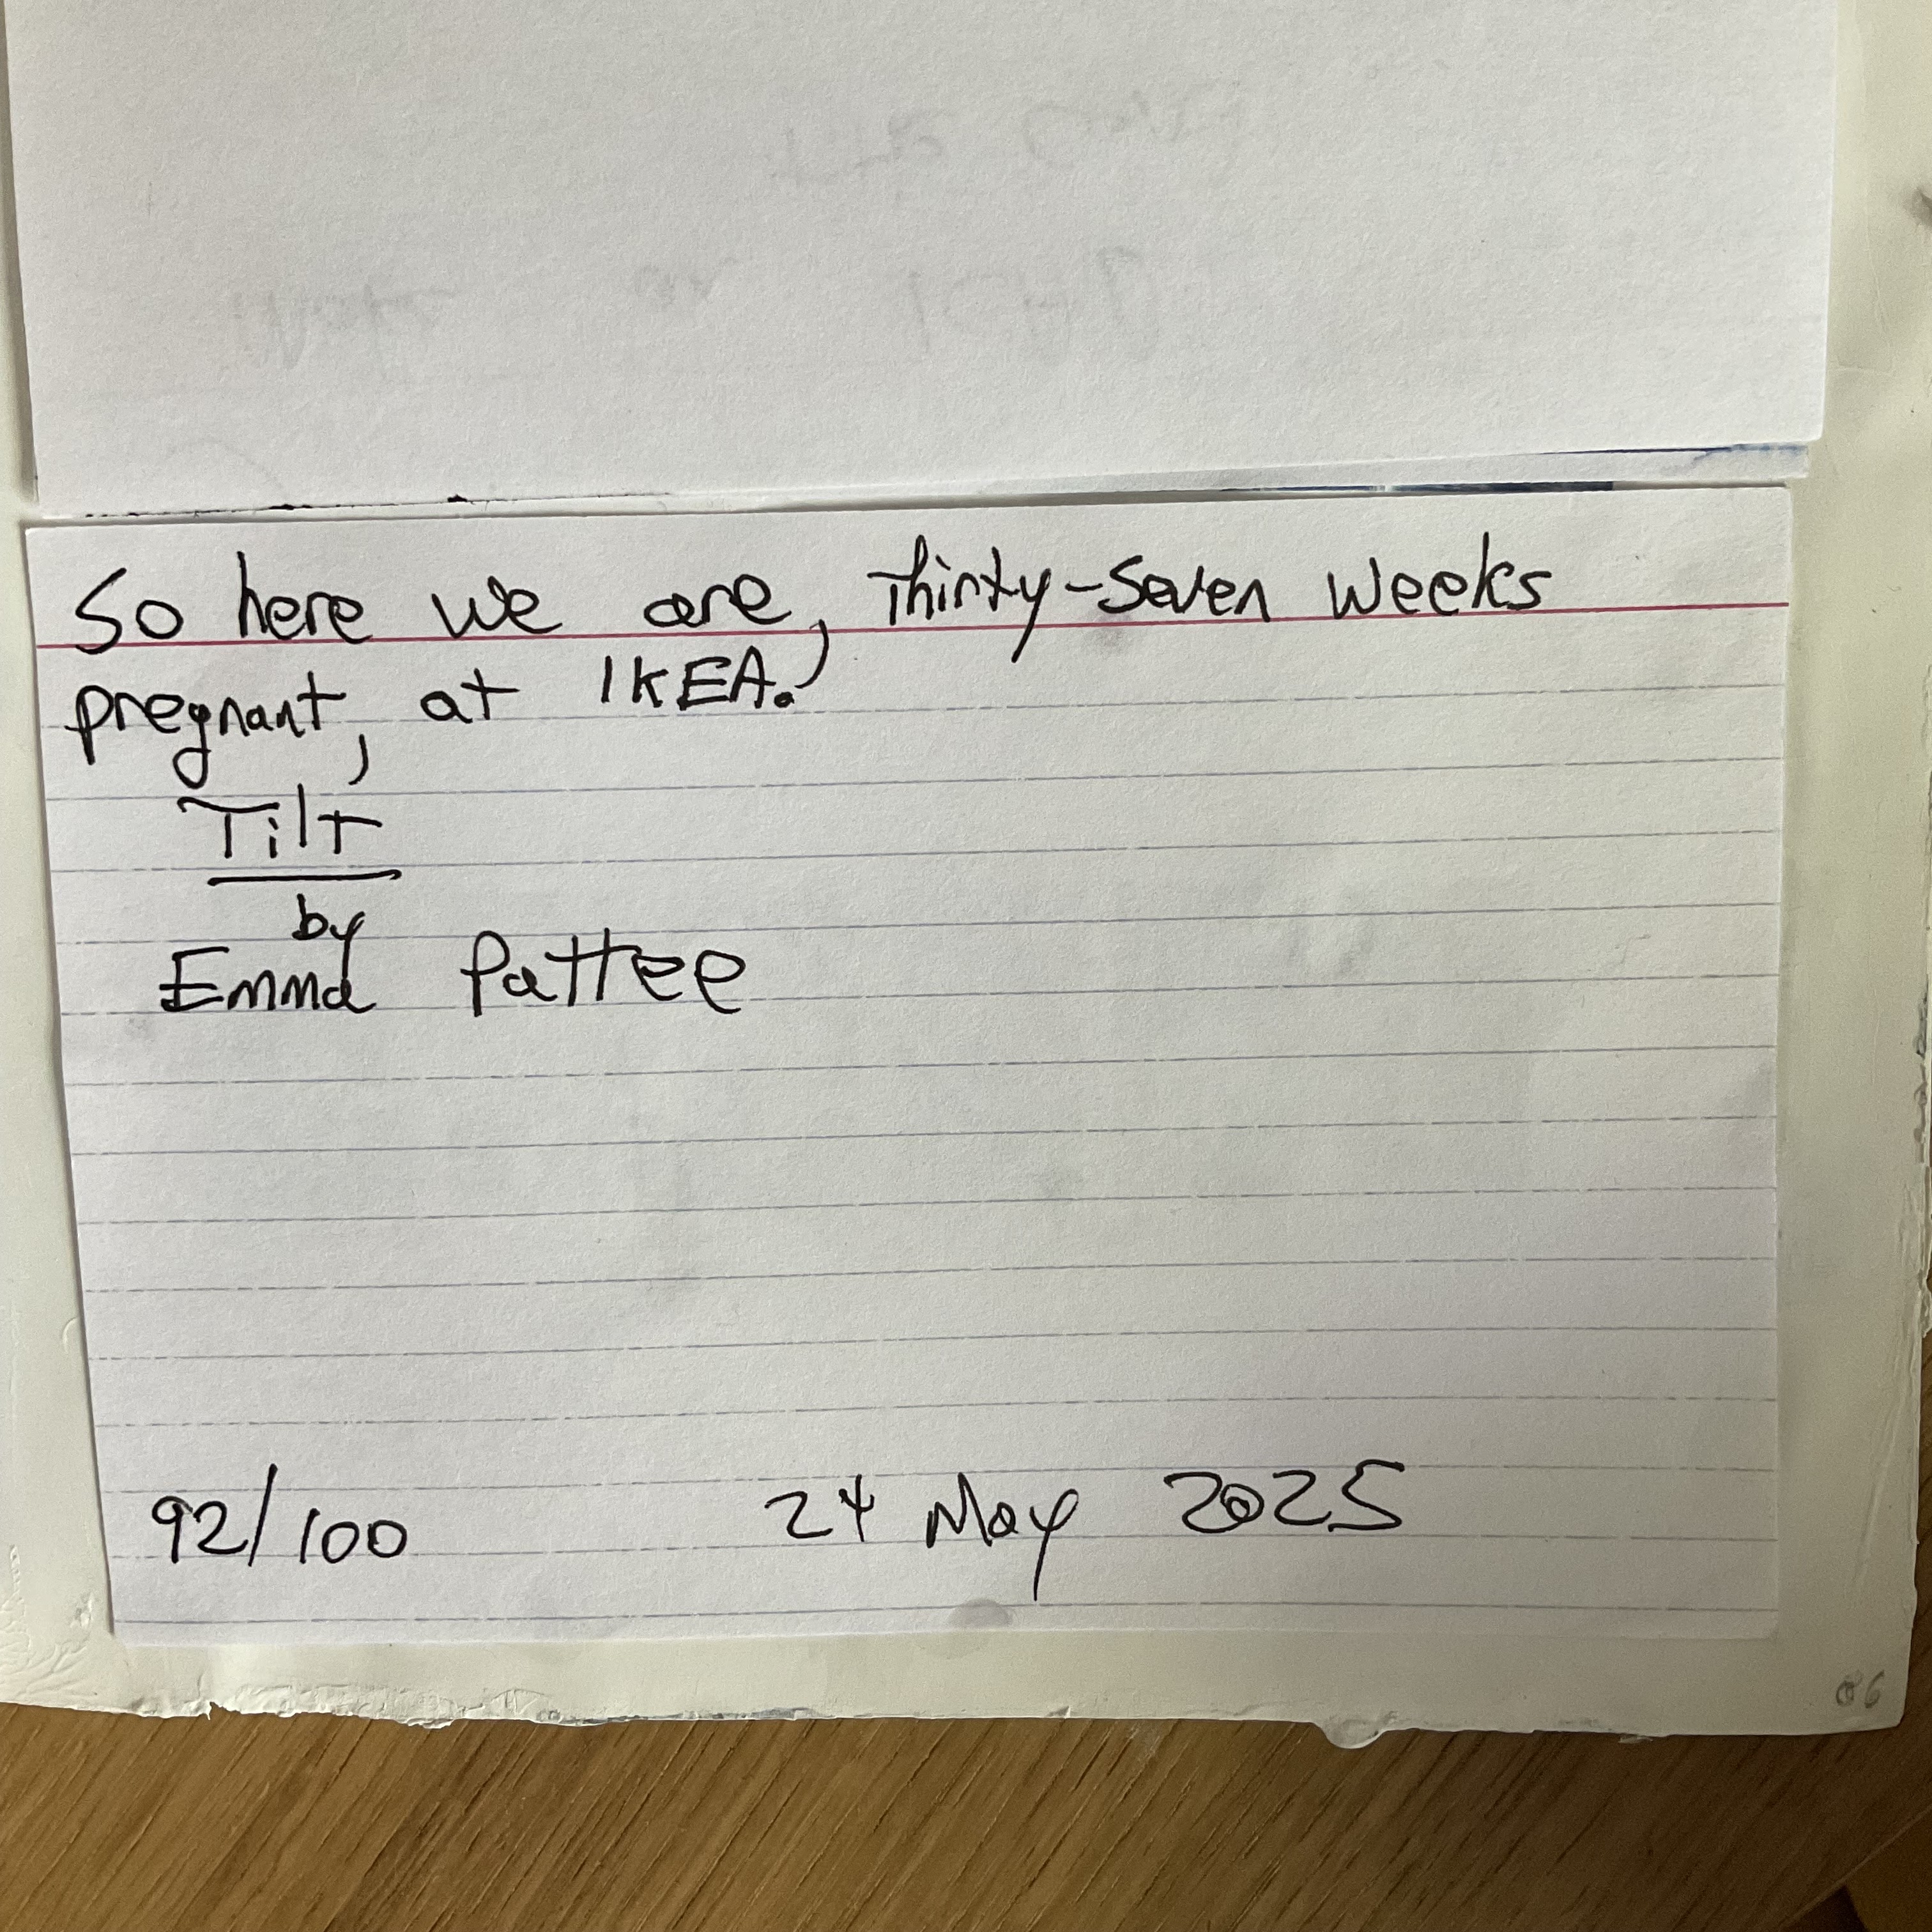 So here we are, Thirty-Seven weeks
pregnant, at IKEA.
Tilt
by
Emma Pattee
92/100 24 May 2025